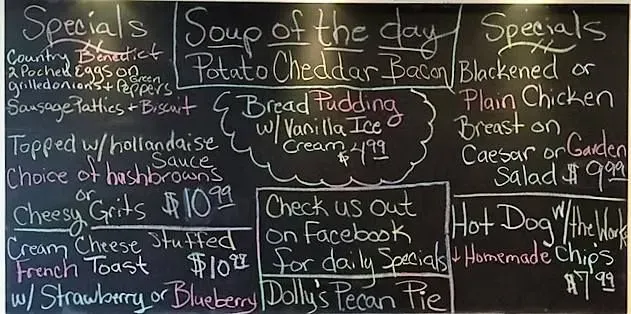 Specials
Country Benedict
2 Poched Eggs on
grilled onions + Green Peppers
Sausage Patties + Biscuit
Topped w/ hollandaise
Sauce
Choice of hashbrowns
or
Cheesy Grits $10.99
Cream Cheese Stuffed
French Toast $10.99
w/ Strawberry or Blueberry
Soup of the day
Potato Cheddar Bacon
Bread Pudding
w/ Vanilla Ice
Cream $4.99
Check us out
on Facebook
for daily Specials
Dolly's Pecan Pie
Specials
Blackened or
Plain Chicken
Breast on
Caesar or Garden
Salad $9.99
Hot Dog w/ the Works
Homemade Chips
$7.99